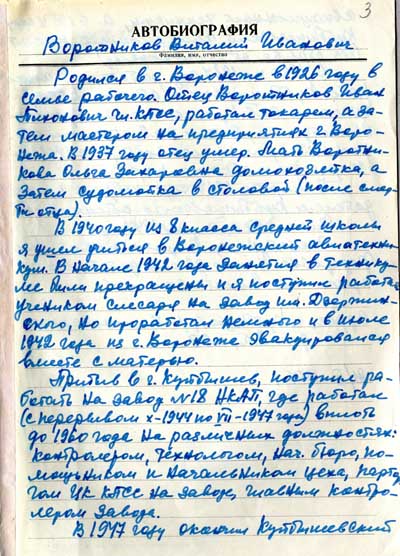 3
АВТОБИОГРАФИЯ
Воротников Виталий Иванович
Фамилия, имя, отчество
Родился в г. Воронеже в 1926 году в
семье рабочего. Отец Воротников Иван
чл. КПСС, работал токарем, а за-
тем мастером на предприятиях г. Воро-
нежа. В 1937 году отец умер. Мать Воротни-
кова Ольга Захаровна домохозяйка, а
затем судомойка в столовой (после смер-
ти отца).
В 1940 году из 8 класса средней школы
я ушел учиться в Воронежский авиатехни-
кум. В начале 1942 года занятия в технику-
ме были прекращены и я поступил работать
учеником слесаря на завод им. Дзержин-
ского, но проработал немного и в июле
1942 года из г. Воронежа эвакуировался
вместе с матерью.
Прибыв в г. Куйбышев, поступил ра-
ботать на завод №18 НКАП, где работал
(с перерывом X-1944 по VII-1947 года) вплоть
до 1960 года на различных должностях:
контролером, технологом, нач. бюро, по-
мощником и начальником цеха, партор-
гом ЦК КПСС на заводе, главным контро-
лером завода.
В 1947 году окончил Куйбышевский